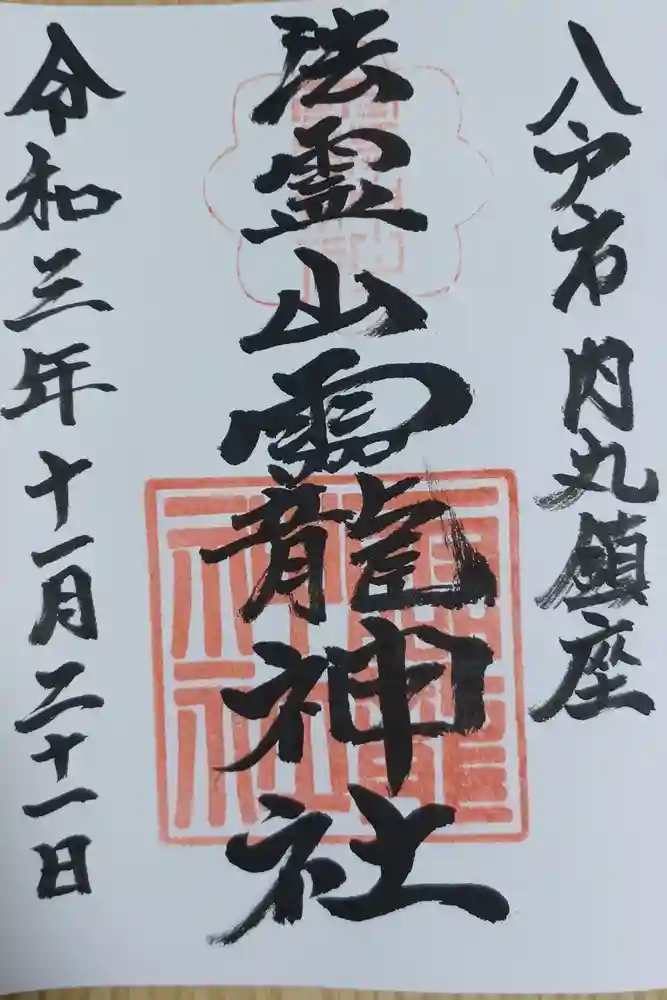 八戸市内丸鎮座
法霊山龗神社
令和三年十一月二十一日